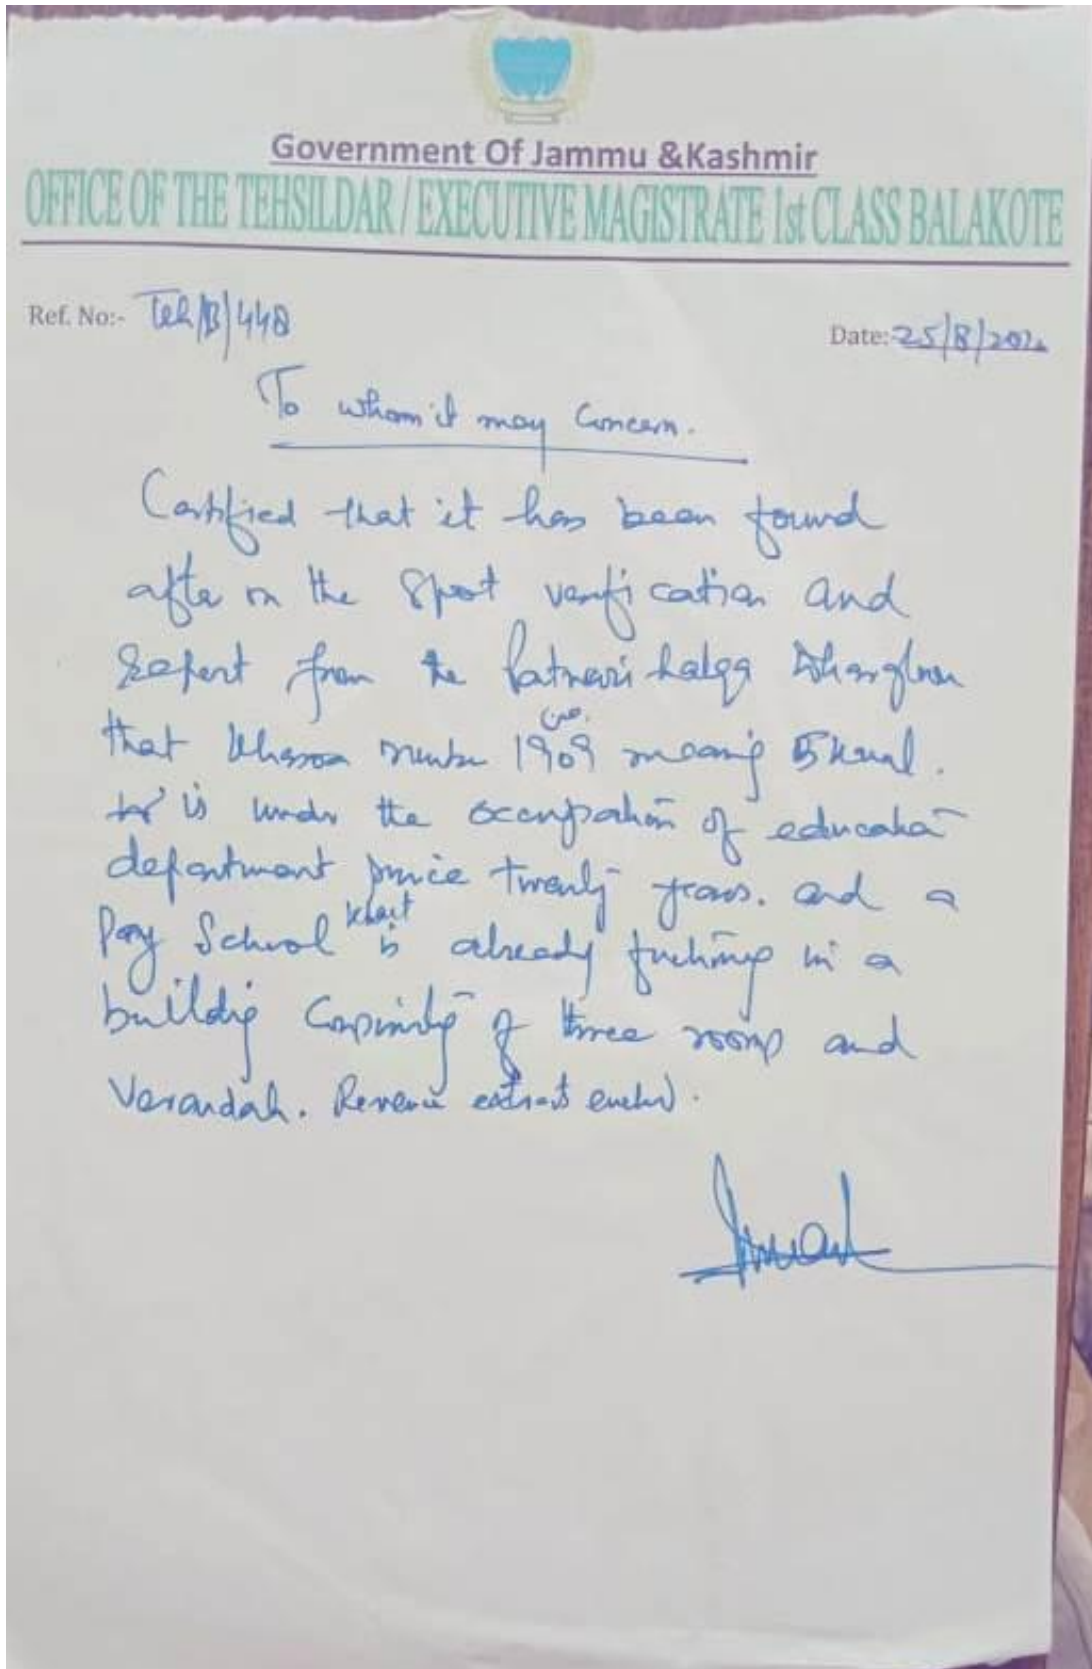 Government Of Jammu &Kashmir
OFFICE OF THE TEHSILDAR / EXECUTIVE MAGISTRATE 1st CLASS BALAKOTE
Ref. No:- Teh/B/448
Date:- 25/8/202
To whom it may Concern.
Certified that it has been found
after on the Spot verification and
Report from the Patwari halqa
that Khasra number 1909 من measuring 5 Kanal.
is under the occupation of education
department since twenty years. and a
Pry School is already in a
building of three rooms and
Verandah. Revenue extract